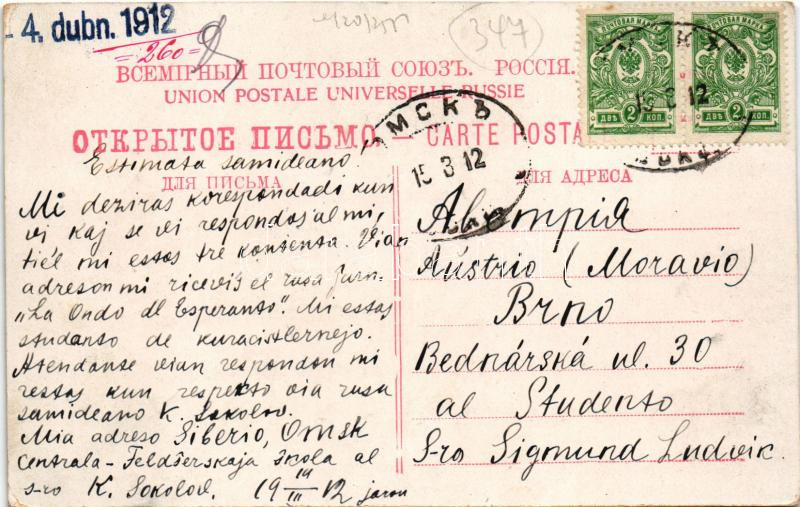 - 4. dubn. 1912
260
347
ВСЕМІРНЫЙ ПОЧТОВЫЙ СОЮЗЪ. РОССІЯ.
UNION POSTALE UNIVERSELLE. RUSSIE
ОТКРЫТОЕ ПИСЬМО — CARTE POSTA
ДЛЯ ПИСЬМА
ДЛЯ АДРЕСА
ПОЧТОВАЯ МАРКА
2
ДВѢ КОП.
ПОЧТОВАЯ МАРКА
2
ДВѢ КОП.
15 3 12
ОМСКЪ
15 3 12
Estimata samideano!
Mi deziras korespondadi kun
vi kaj se vi respondos al mi,
tiel mi estos tre kontenta. Vian
adreson mi ricevis el rusa ĵurn-
„La Ondo de Esperanto". Mi estas
studanto de kuracistlernejo.
Atendante vian respondon mi
restas kun respekto via rusa
samideano K. Sokolov.
Mia adreso Siberio, Omsk
Centrala-Feldŝerskaja ŝkola al
s-ro K. Sokolov. 19 19/III 12 jaron
Austrio (Moravio)
Brno
Bednárská ul. 30
al Studento
S-ro Sigmund Ludvik.